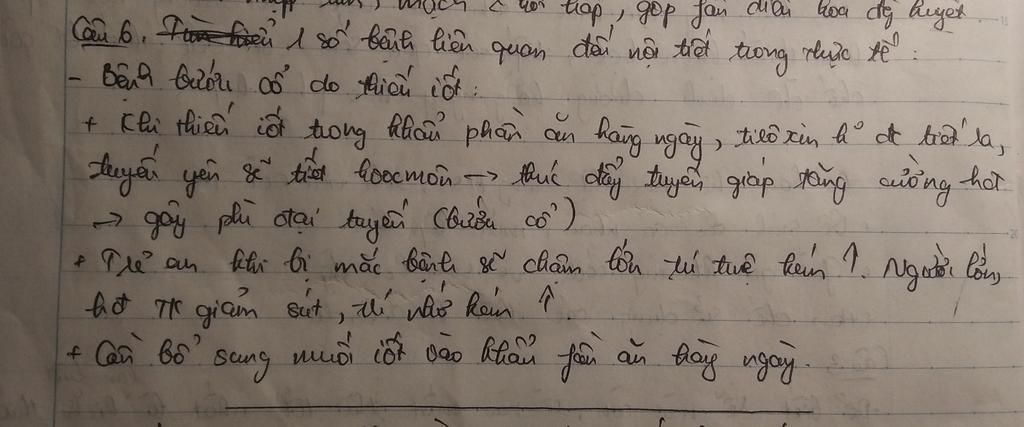 mạch , góp fần điều hòa đg huyết.
Câu 6. 1 số bệnh liên quan đến nội tiết trong thực tế:
- Bệnh bướu cổ do thiếu iốt:
+ Khi thiếu iốt trong khẩu phần ăn hằng ngày, tirôxin k° đc tiết ra,
tuyến yên sẽ tiết hoocmôn → thúc đẩy tuyến giáp tăng cường hđ
→ gây phì đại tuyến (bướu cổ)
+ Trẻ em khi bị mắc bệnh sẽ chậm lớn trí tuệ kém ↑. Người lớn,
hđ TK giảm sút, trí nhớ kém ↑
+ Cần bổ sung muối iốt vào khẩu fần ăn hàng ngày.